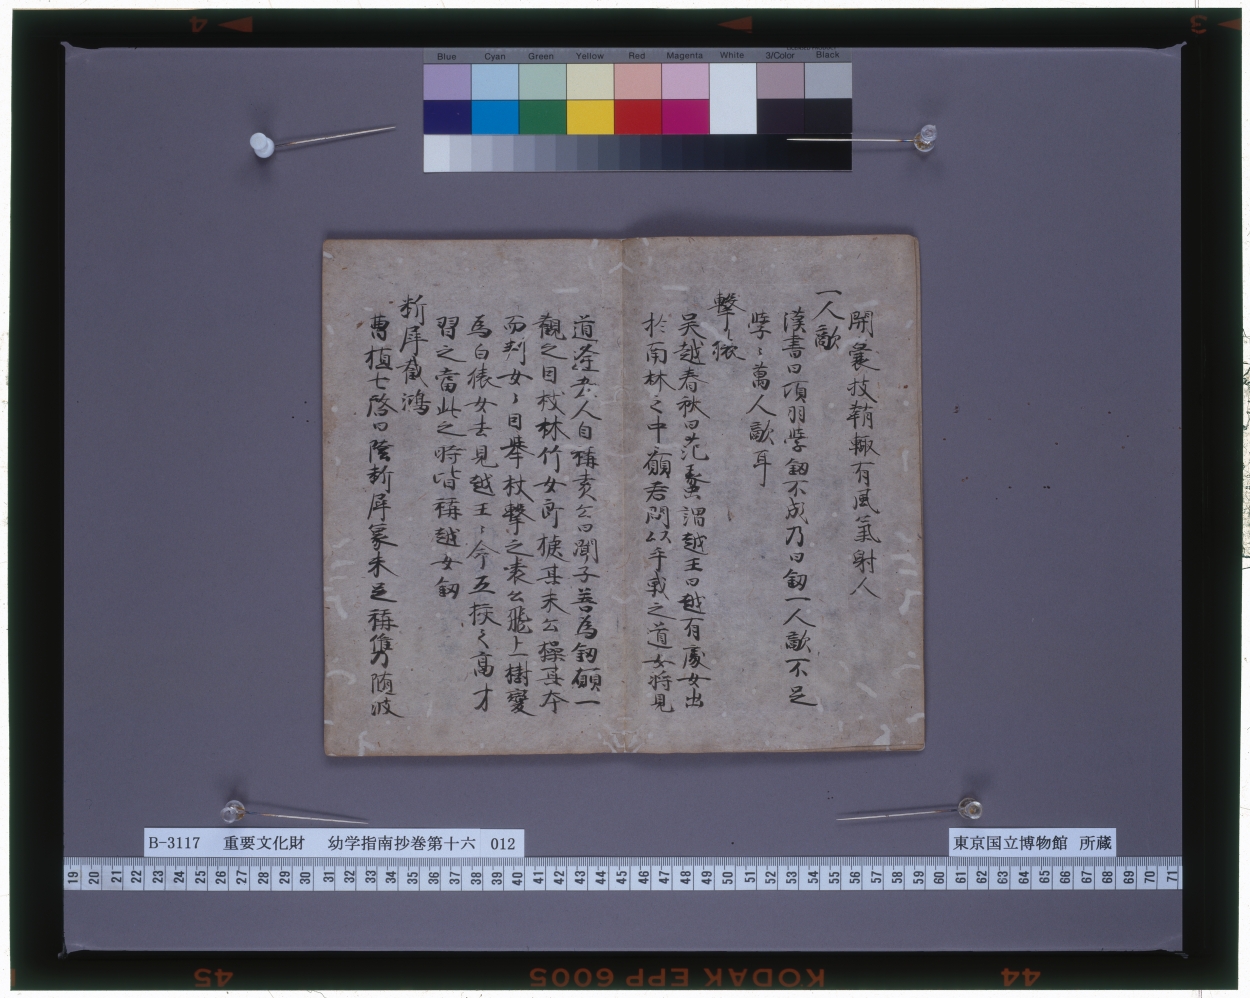 Blue Cyan Green Yellow Red Magenta White 3/Color Black
開嚢技鞘輙有風氣射人
一人敵
漢書曰項羽學釼不成乃曰釼一人敵不足
學〻萬人敵耳
撃〻猿
吴越春秋曰范蠡謂越王曰越有處女出
於南林之中願君問以手戦之道女将見
道逢老人自稱袁公曰聞子善為釼願一
觀之曰杖林竹女所捷其末公操其本
而刺女〻曰舉杖撃之袁公飛上一樹變
為白猿女去見越王〻令五挍之高才
習之當此之時皆稱越女釼
斬犀截鴻
曹植七啓曰陸斬犀象未足稱儁随波
B-3117 重要文化財 幼学指南抄巻第十六 012
東京国立博物館 所蔵
19 20 21 22 23 24 25 26 27 28 29 30 31 32 33 34 35 36 37 38 39 40 41 42 43 44 45 46 47 48 49 50 51 52 53 54 55 56 57 58 59 60 61 62 63 64 65 66 67 68 69 70 71
44 KODAK EPP 6005 45